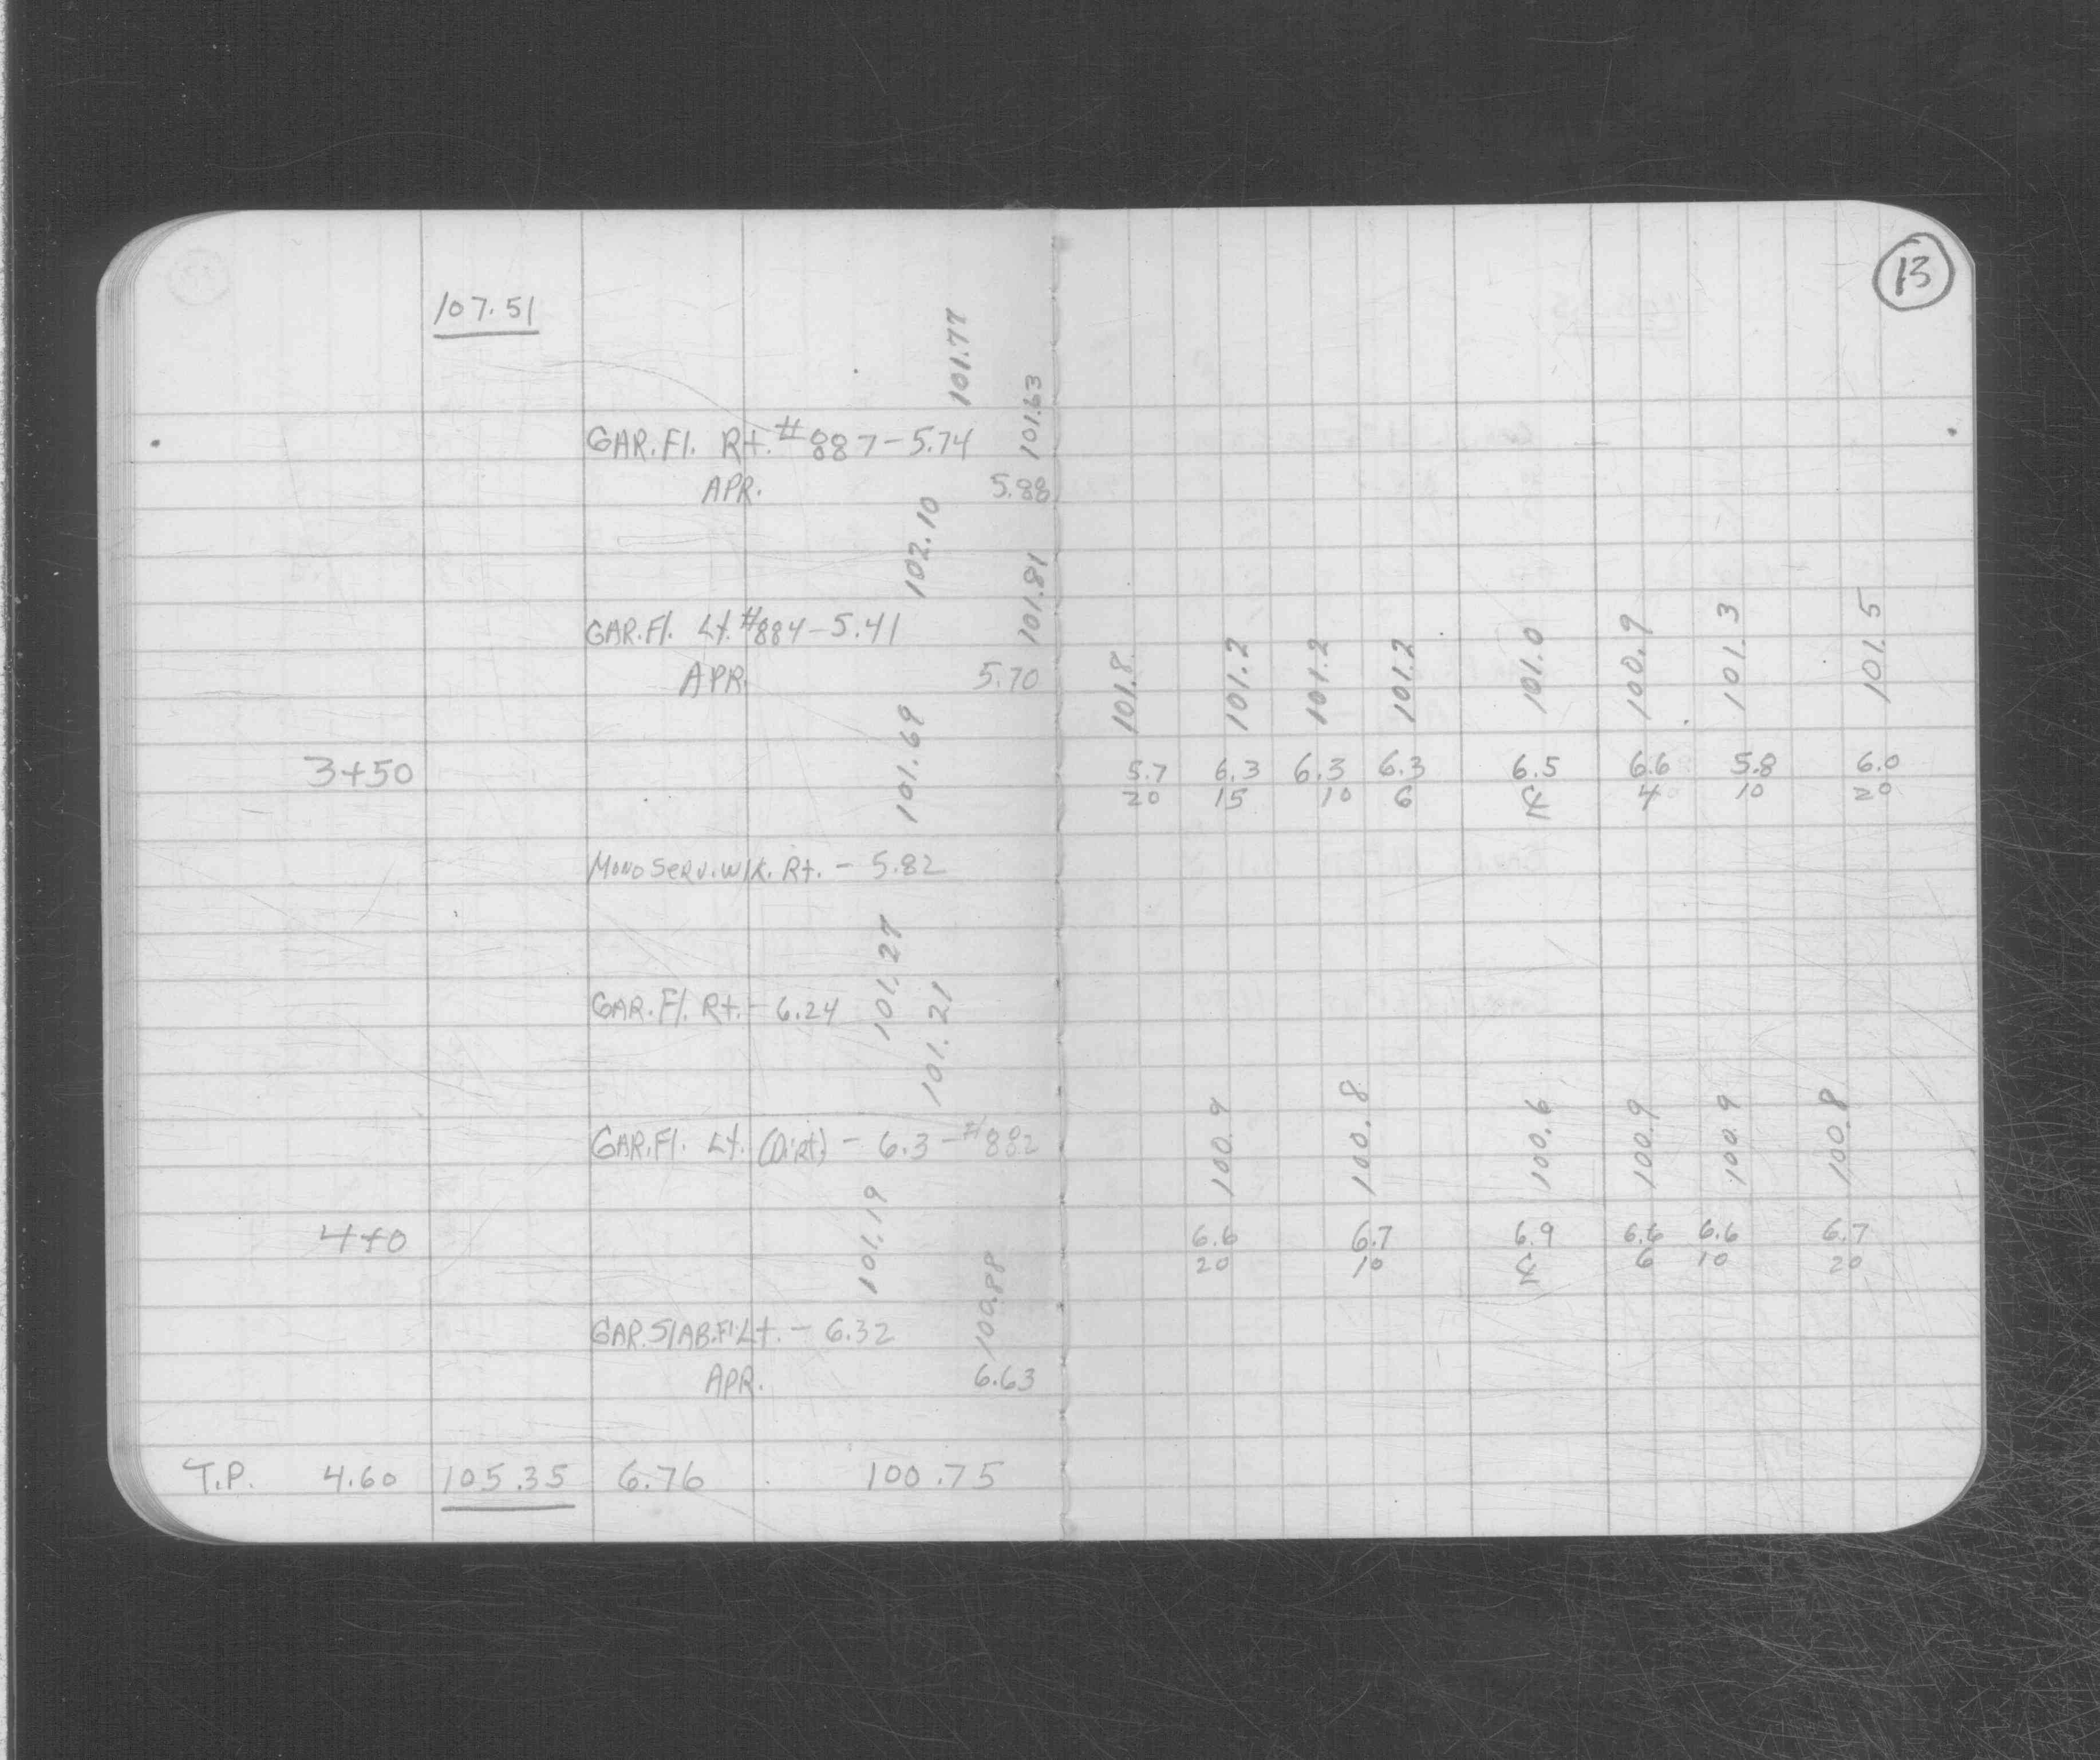 13
107.51
101.77
101.63
GAR.Fl. Rt. #887-5.74
APR. 5.88
102.10
101.81
GAR.Fl. Lt. #884-5.41
APR. 5.70
101.69
101.8 101.2 101.2 101.2 101.0 100.9 101.3 101.5
3+50 5.7 6.3 6.3 6.3 6.5 6.6 5.8 6.0
20 15 10 6 ℄ 4 10 20
Mono Serv. Wlk. Rt. - 5.82
101.27
101.21
GAR.Fl. Rt. - 6.24
GAR.Fl. Lt. (Dirt) - 6.3 - #882
100.9 100.8 100.6 100.9 100.9 100.8
101.19
4+0 6.6 6.7 6.9 6.6 6.6 6.7
20 10 ℄ 6 10 20
100.88
GAR.SlAB.Fl.Lt. - 6.32
APR. 6.63
T.P. 4.60 105.35 6.76 100.75